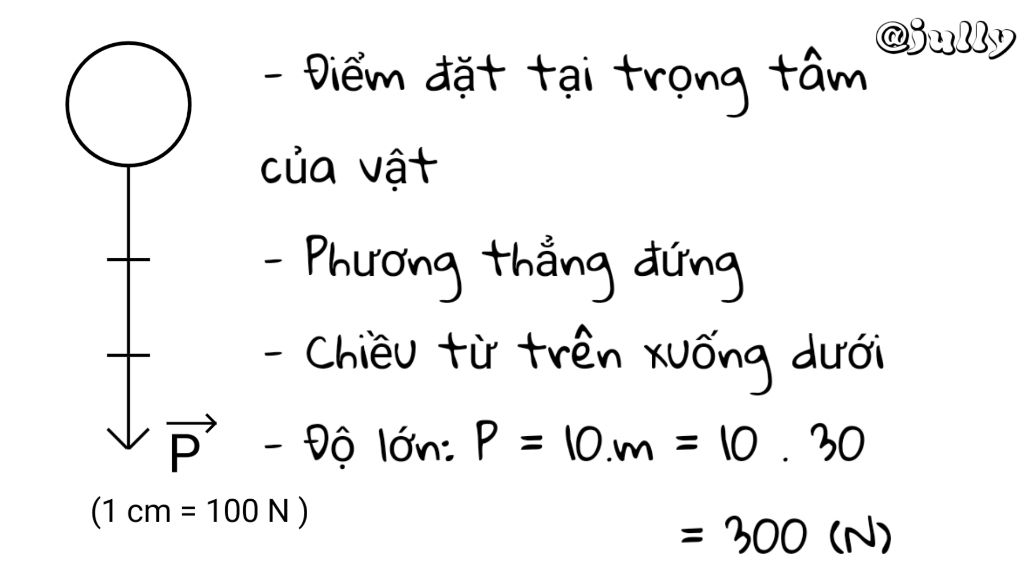 @jully
- Điểm đặt tại trọng tâm
của vật
- Phương thẳng đứng
- Chiều từ trên xuống dưới
- Độ lớn: P = 10.m = 10 . 30
= 300 (N)
P
(1 cm = 100 N )